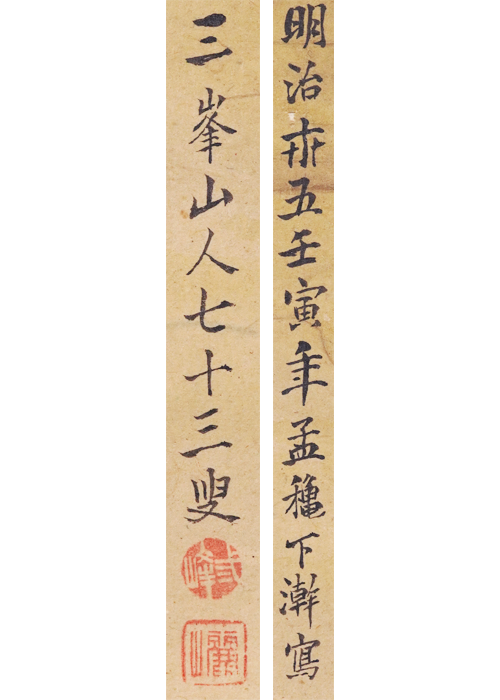 明治卅五壬寅年孟穐下澣寫
三峯山人七十三叟